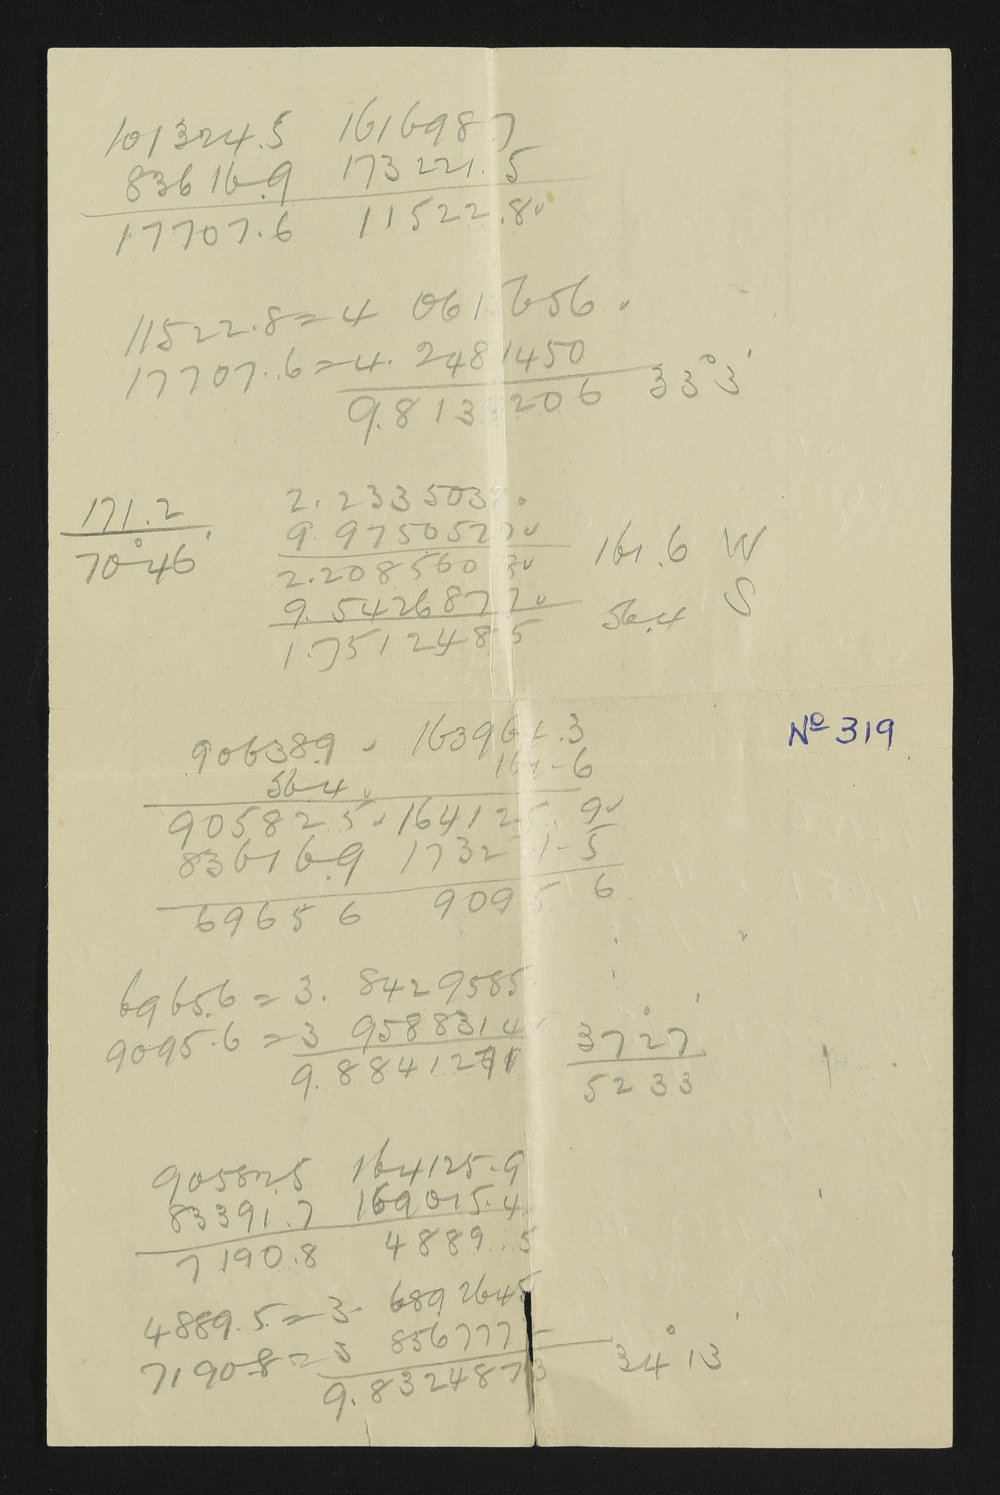 101324.5 161698.7
83616.9 173221.5
17707.6 11522.8
11522.8 = 4 0615656
17707.6 = 4. 2481450
9.8134206 33° 3'
171.2
70°46'
2. 233503
9. 9750527
2.208560
9. 5426877
1.7512485
161.6 W
56.4 S
90638.9 163964.3
56.4 161.6
90582.5 164125.9
83616.9 173221.5
6965 6 9095 6
No 319
6965.6 = 3. 8429585
9095.6 = 3 9588314
9. 8841271
37°27'
52 33
90582.5 164125.9
83391.7 169015.4
7190.8 4889.5
4889.5 = 3. 6892645
7190.8 = 3 856777
9.8324873 34° 13'